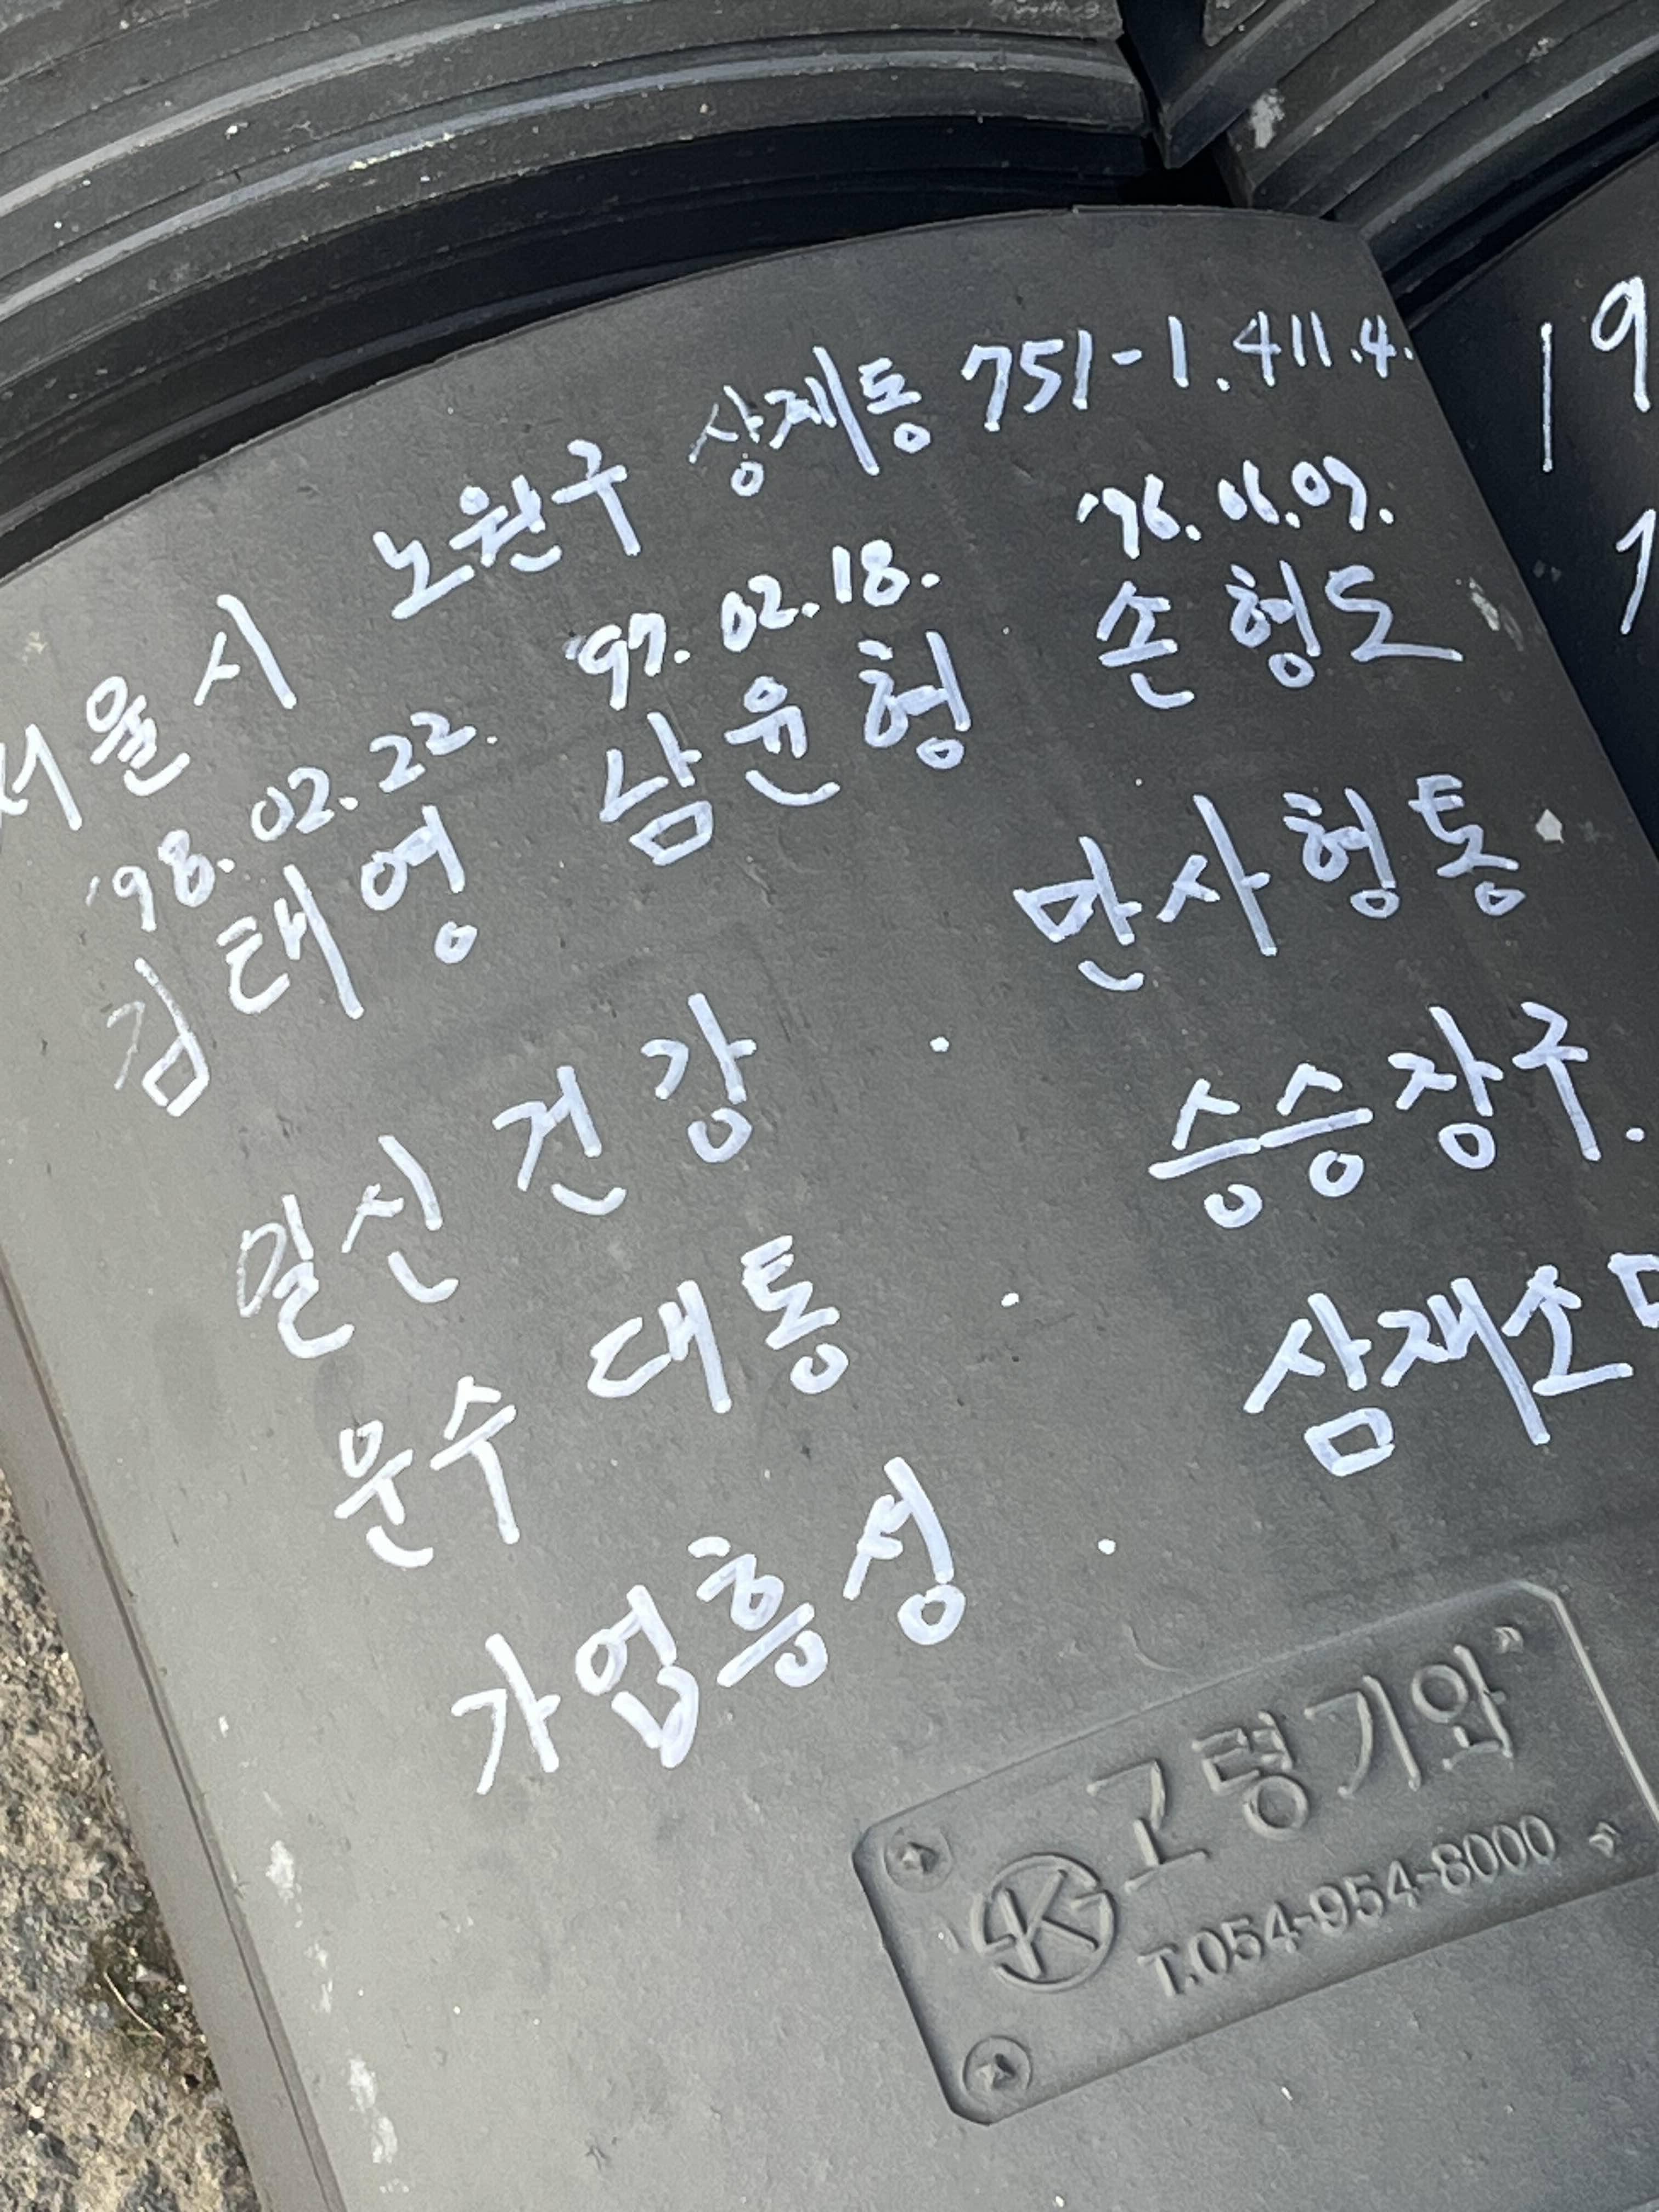 서울시 노원구 상계동 751-1. 411.4.
'98.02.22. '97.02.18. '96.06.09.
김태영 남윤형 손형도
일신건강 . 만사형통
운수대통 . 승승장구.
가업흥성 . 삼재소
고령기와
T.054-954-8000
19